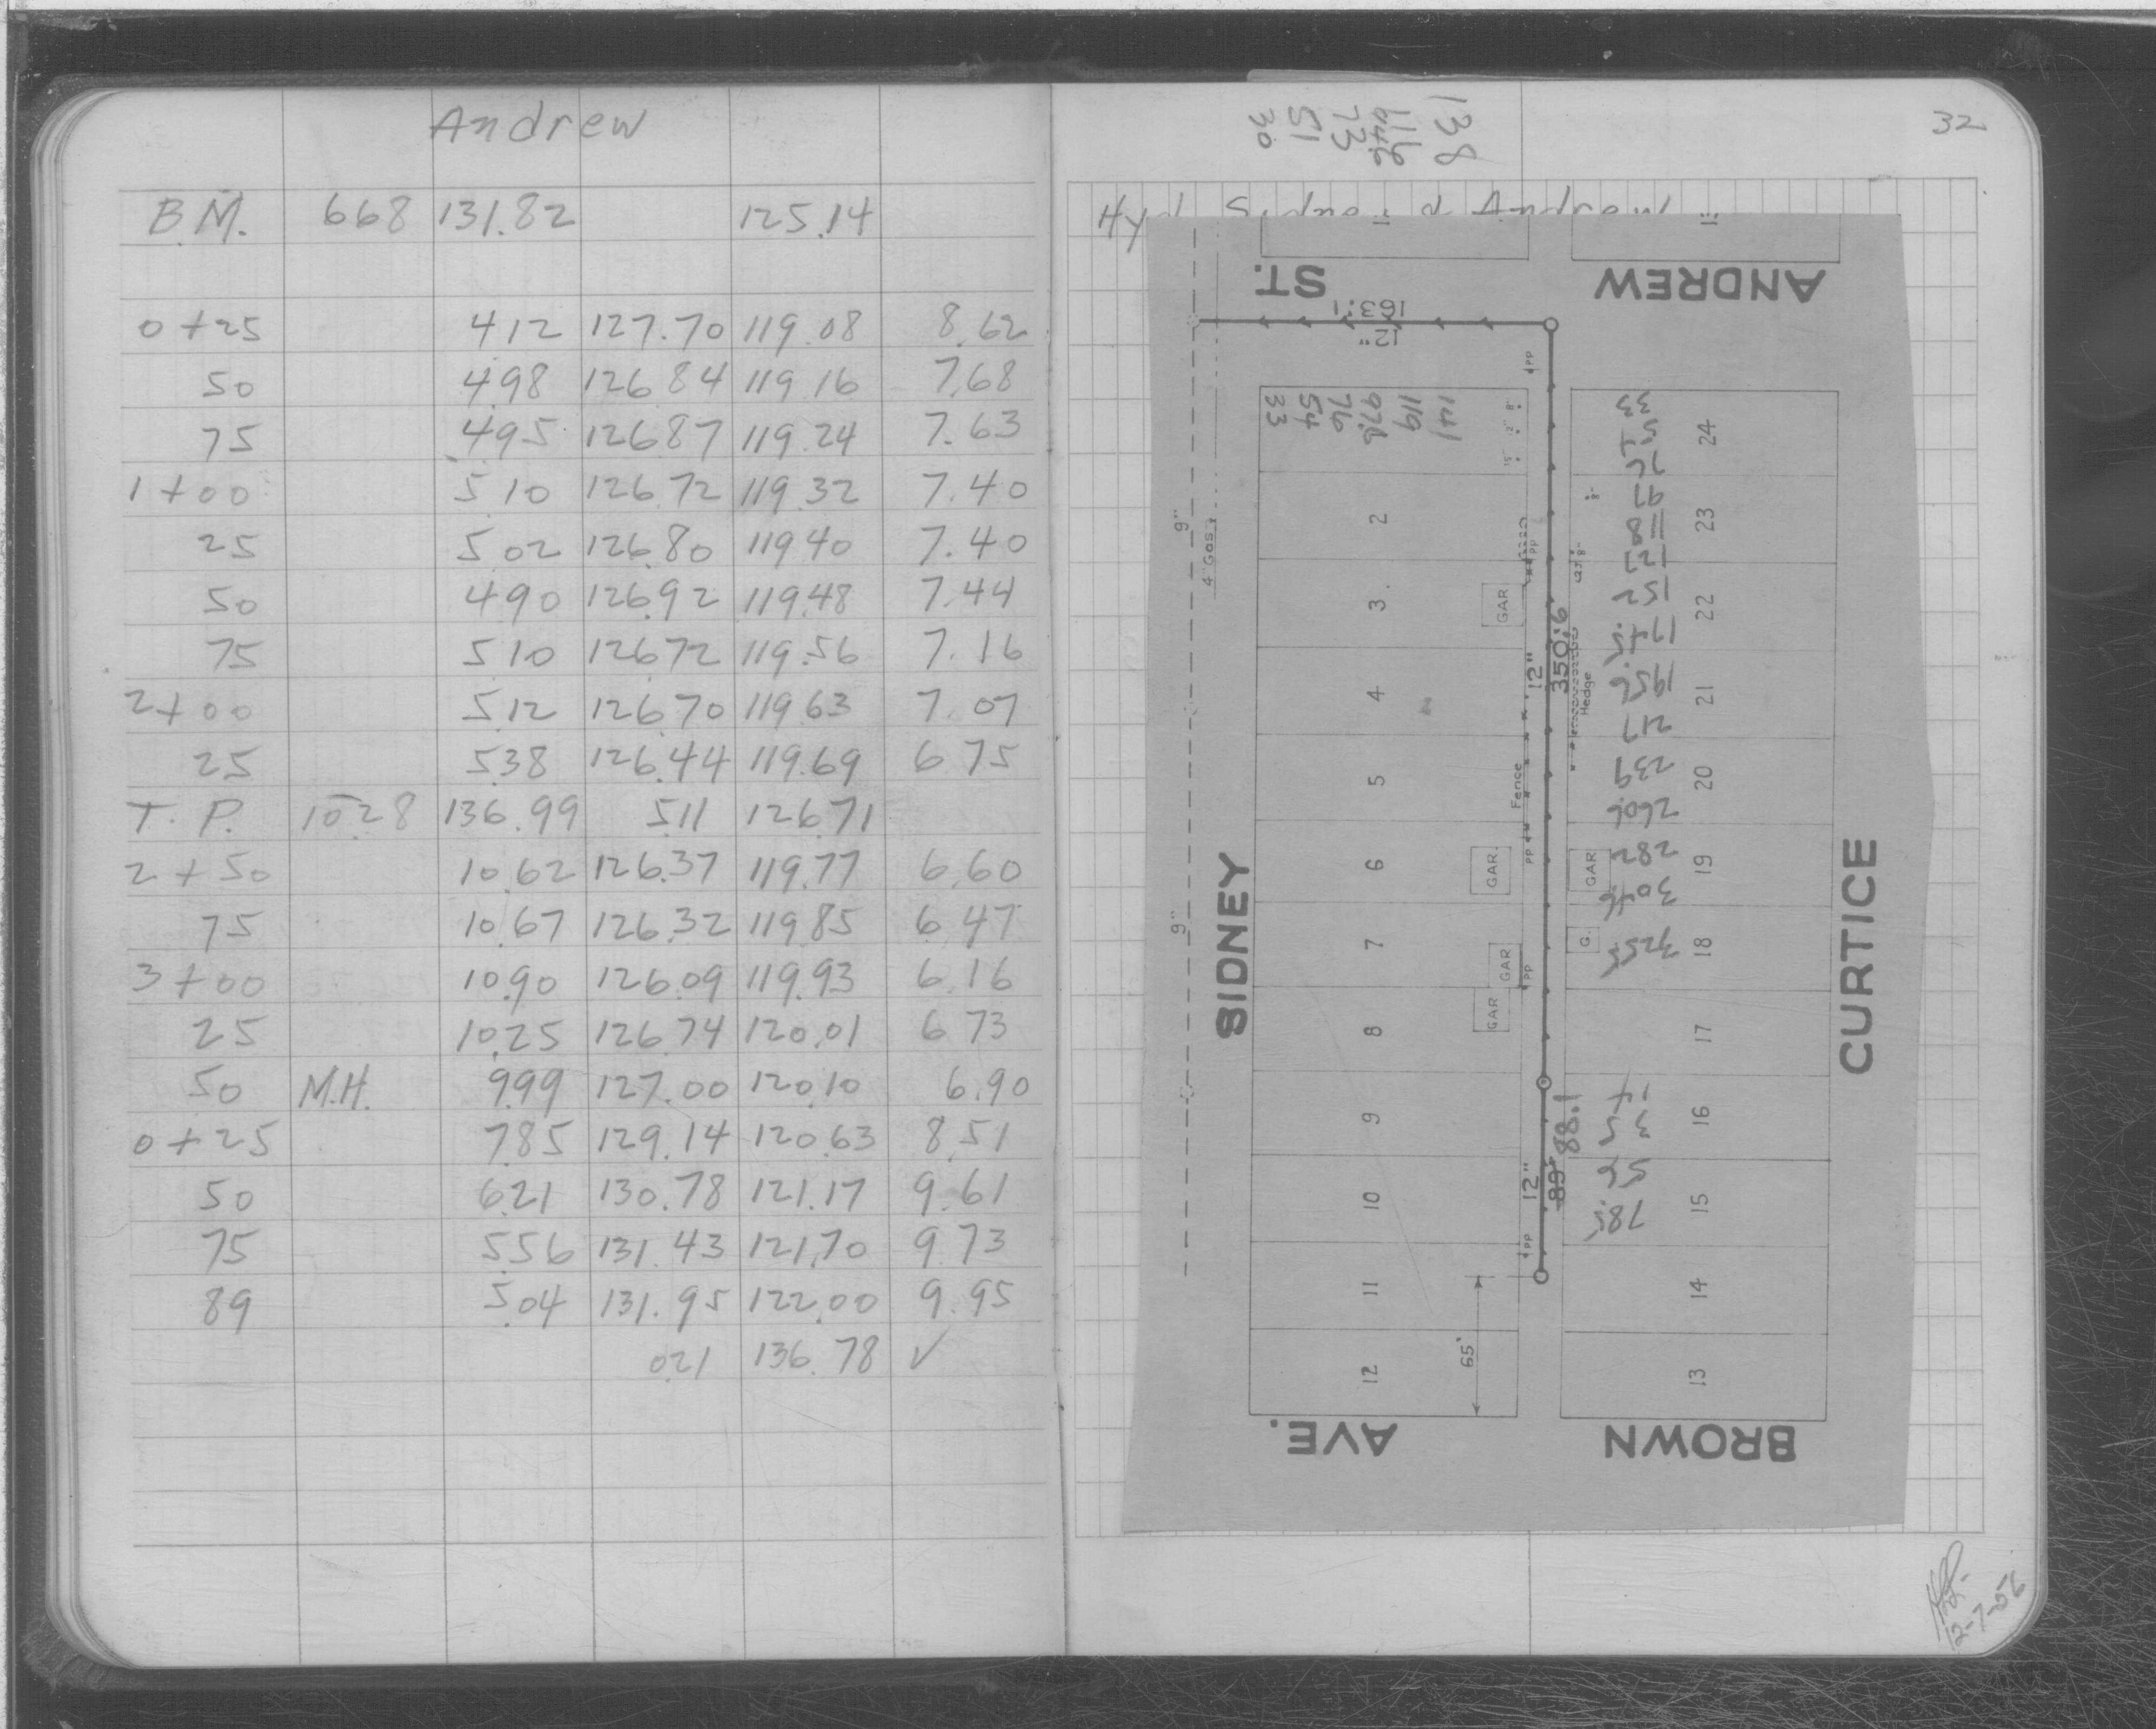 Andrew
B.M. 668 131.82 125.14
0+25 412 127.70 119.08 8.62
50 4.98 126.84 119.16 7.68
75 4.95 126.87 119.24 7.63
1+00 5.10 126.72 119.32 7.40
25 5.02 126.80 119.40 7.40
50 490 126.92 119.48 7.44
75 510 126.72 119.56 7.16
2+00 5.12 126.70 119.63 7.07
25 5.38 126.44 119.69 6.75
T.P. 10.28 136.99 5.11 126.71
2+50 10.62 126.37 119.77 6.60
75 10.67 126.32 119.85 6.47
3+00 10.90 126.09 119.93 6.16
25 10.25 126.74 120.01 6.73
50 M.H. 9.99 127.00 120.10 6.90
0+25 7.85 129.14 120.63 8.51
50 6.21 130.78 121.17 9.61
75 5.56 131.43 121.70 9.73
89 5.04 131.95 122.00 9.95
0.21 136.78 ✓
32
138
116
94.6
73
51
30
Hyd. Sidney & Andrew
ANDREW ST.
163.1
12"
141
119
97.6
76
54
33
2
3
4
5
6
7
8
9
10
11
12
24
23
22
21
20
19
18
17
16
15
14
13
9"
4" Gas
9"
PP
PP
GAR
12"
350.6
Hedge
Fence
PP
GAR.
GAR
GAR
G.
PP
GAR
12"
89'
88.1
PP
65'
33
54
76
97
118
127
152
174.5
195.6
217
239
260.6
282
304.6
325.5
14
35
56
78.5
SIDNEY
CURTICE
BROWN AVE.
12-7-56